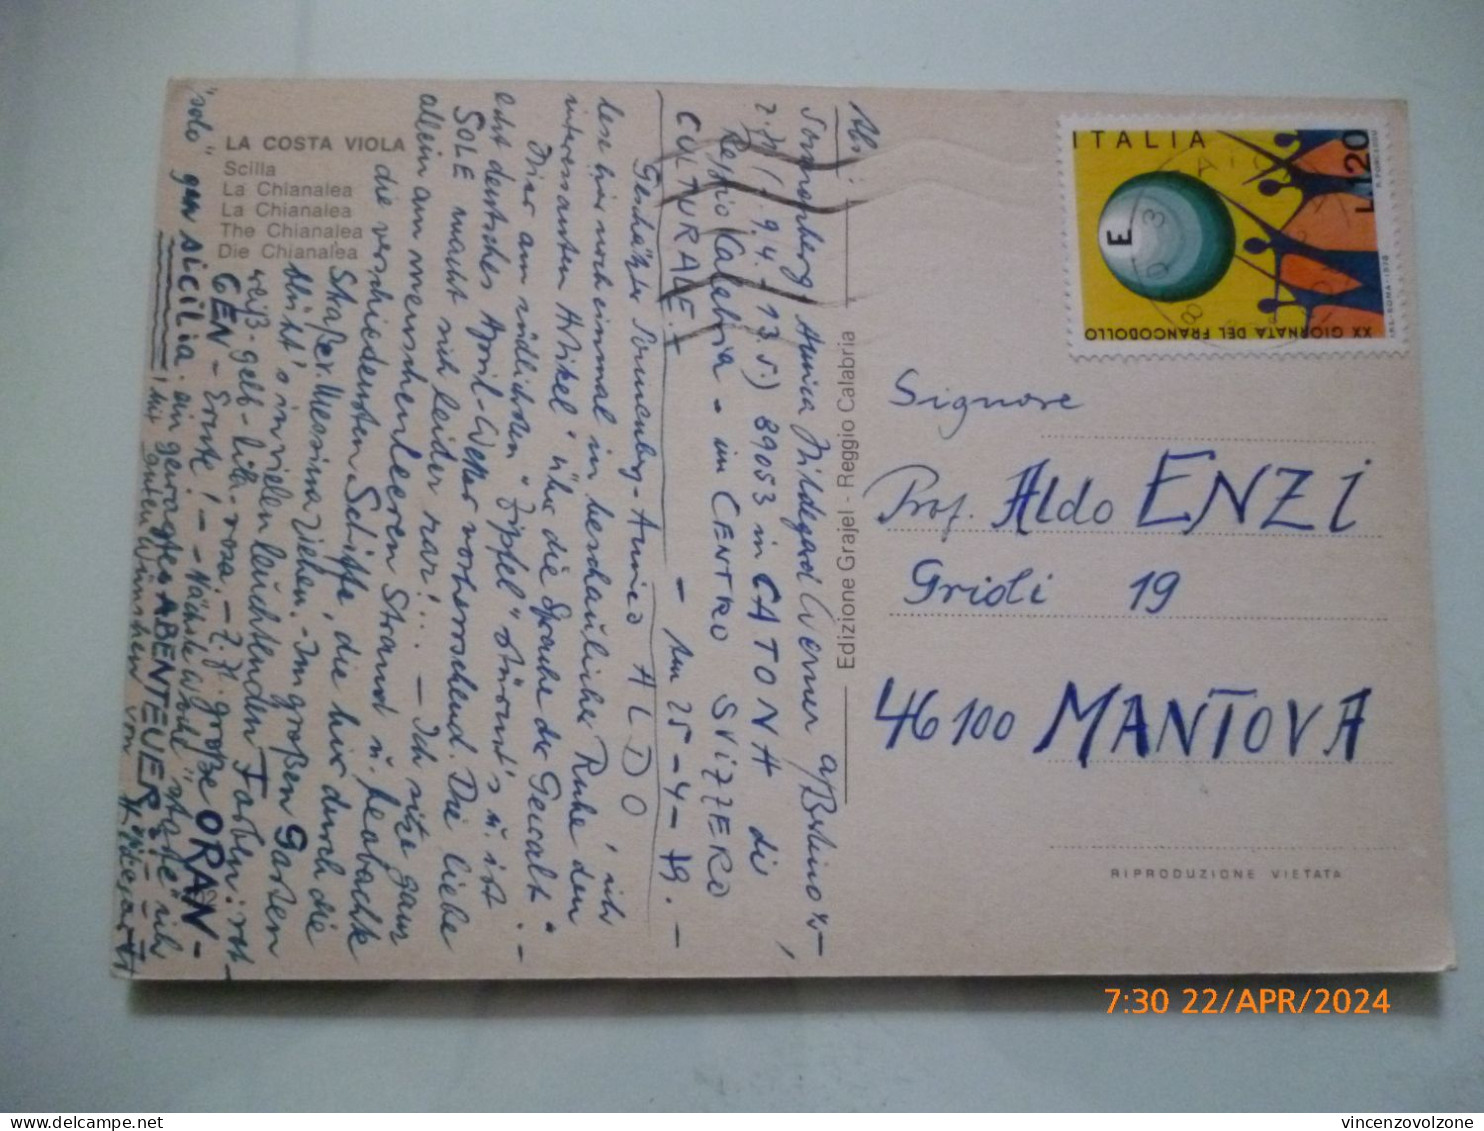 LA COSTA VIOLA
Scilla
La Chianalea
La Chianalea
The Chianalea
Die Chianalea
Edizione Grajel - Reggio Calabria
RIPRODUZIONE VIETATA
ITALIA
L.120
E.
XX GIORNATA DEL FRANCOBOLLO
Signore
Prof. Aldo ENZI
Grioli 19
46100 MANTOVA
Abs.:
Hildegard Werner
z. Zt. ( 9.4. - 13.5.) 89053 in CATONA di
Reggio Calabria - im CENTRO SVIZZERO
CULTURALE. - - am 25-4-79. -
ALDO
lese hier noch einmal in beschaulicher Ruhe den
interessanten Artikel "über die Sprache der Gewalt". -
Hier am südlichsten "Zipfel" stürmt's u. ist
echt deutsches April-Wetter vorherrschend. Die liebe
SOLE macht sich leider rar!.. - Ich sitze ganz
allein am menschenleeren Strand u. beobachte
die verschiedensten Schiffe, die hier durch die
Straße v. Messina ziehen. - Im großen Garten
blüht's in vielen leuchtenden Farben: rot
weiß-gelb-lila-rosa. - z. Zt. große ORAN-
GEN-Ernte! - - Nächste Woche "starte" ich
"solo" gen SICILIA. ein gewagtes ABENTEUER
guten Wünschen von
7:30 22/APR/2024
vincenzovolzone